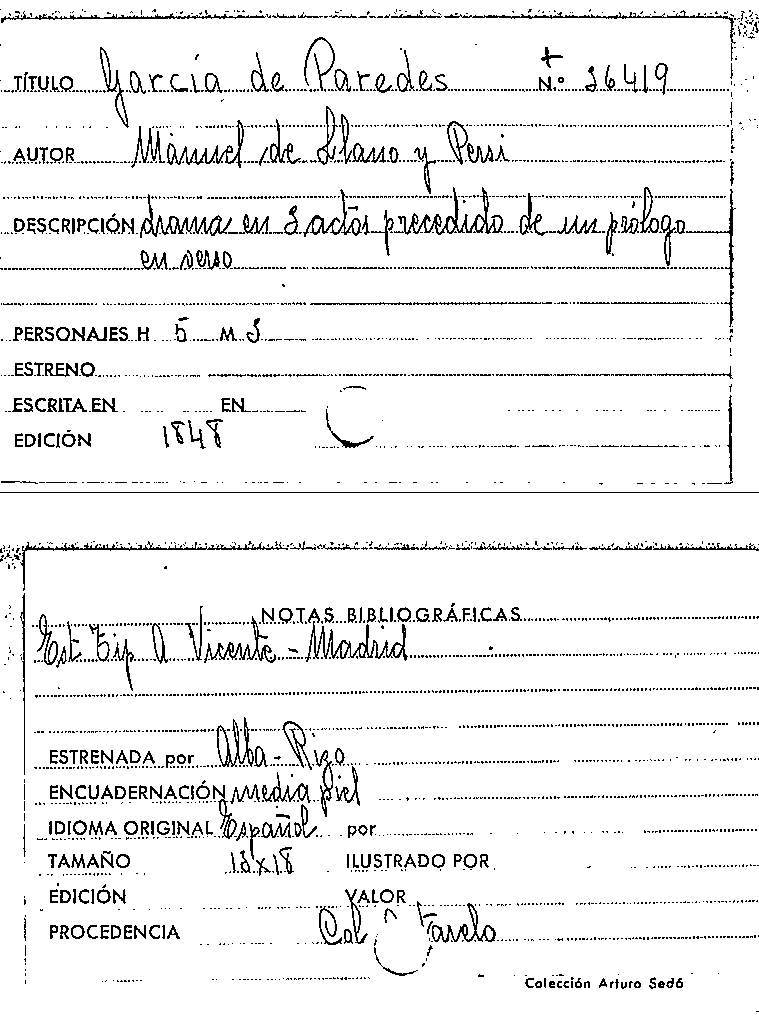 TÍTULO García de Paredes + N.º 36419
AUTOR Manuel de Llano y Persi
DESCRIPCIÓN drama en 3 actos precedido de un prólogo
en verso
PERSONAJES H 5 M 3
ESTRENO
ESCRITA EN EN
EDICIÓN 1848
NOTAS BIBLIOGRÁFICAS
Est. Tip A Vicente - Madrid
ESTRENADA por Alba - Rizo
ENCUADERNACIÓN media piel
IDIOMA ORIGINAL Español por
TAMAÑO 13x18 ILUSTRADO POR
EDICIÓN VALOR
PROCEDENCIA Col
Colección Arturo Sedó